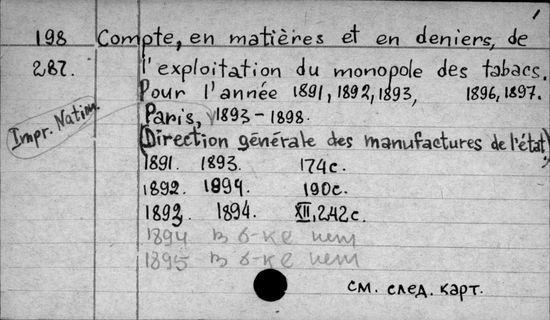 1
198 Compte, en matières et en deniers, de
287. l'exploitation du monopole des tabacs.
Pour l'année 1891, 1892, 1893, 1896, 1897.
Impr. Nation.
Paris, 1893-1898.
(Direction générale des manufactures de l'état)
1891. 1893. 174c.
1892. 1894. 190c.
1893. 1894. XII, 242c.
1894 в б-ке нет
1895 в б-ке нет
см. след. карт.